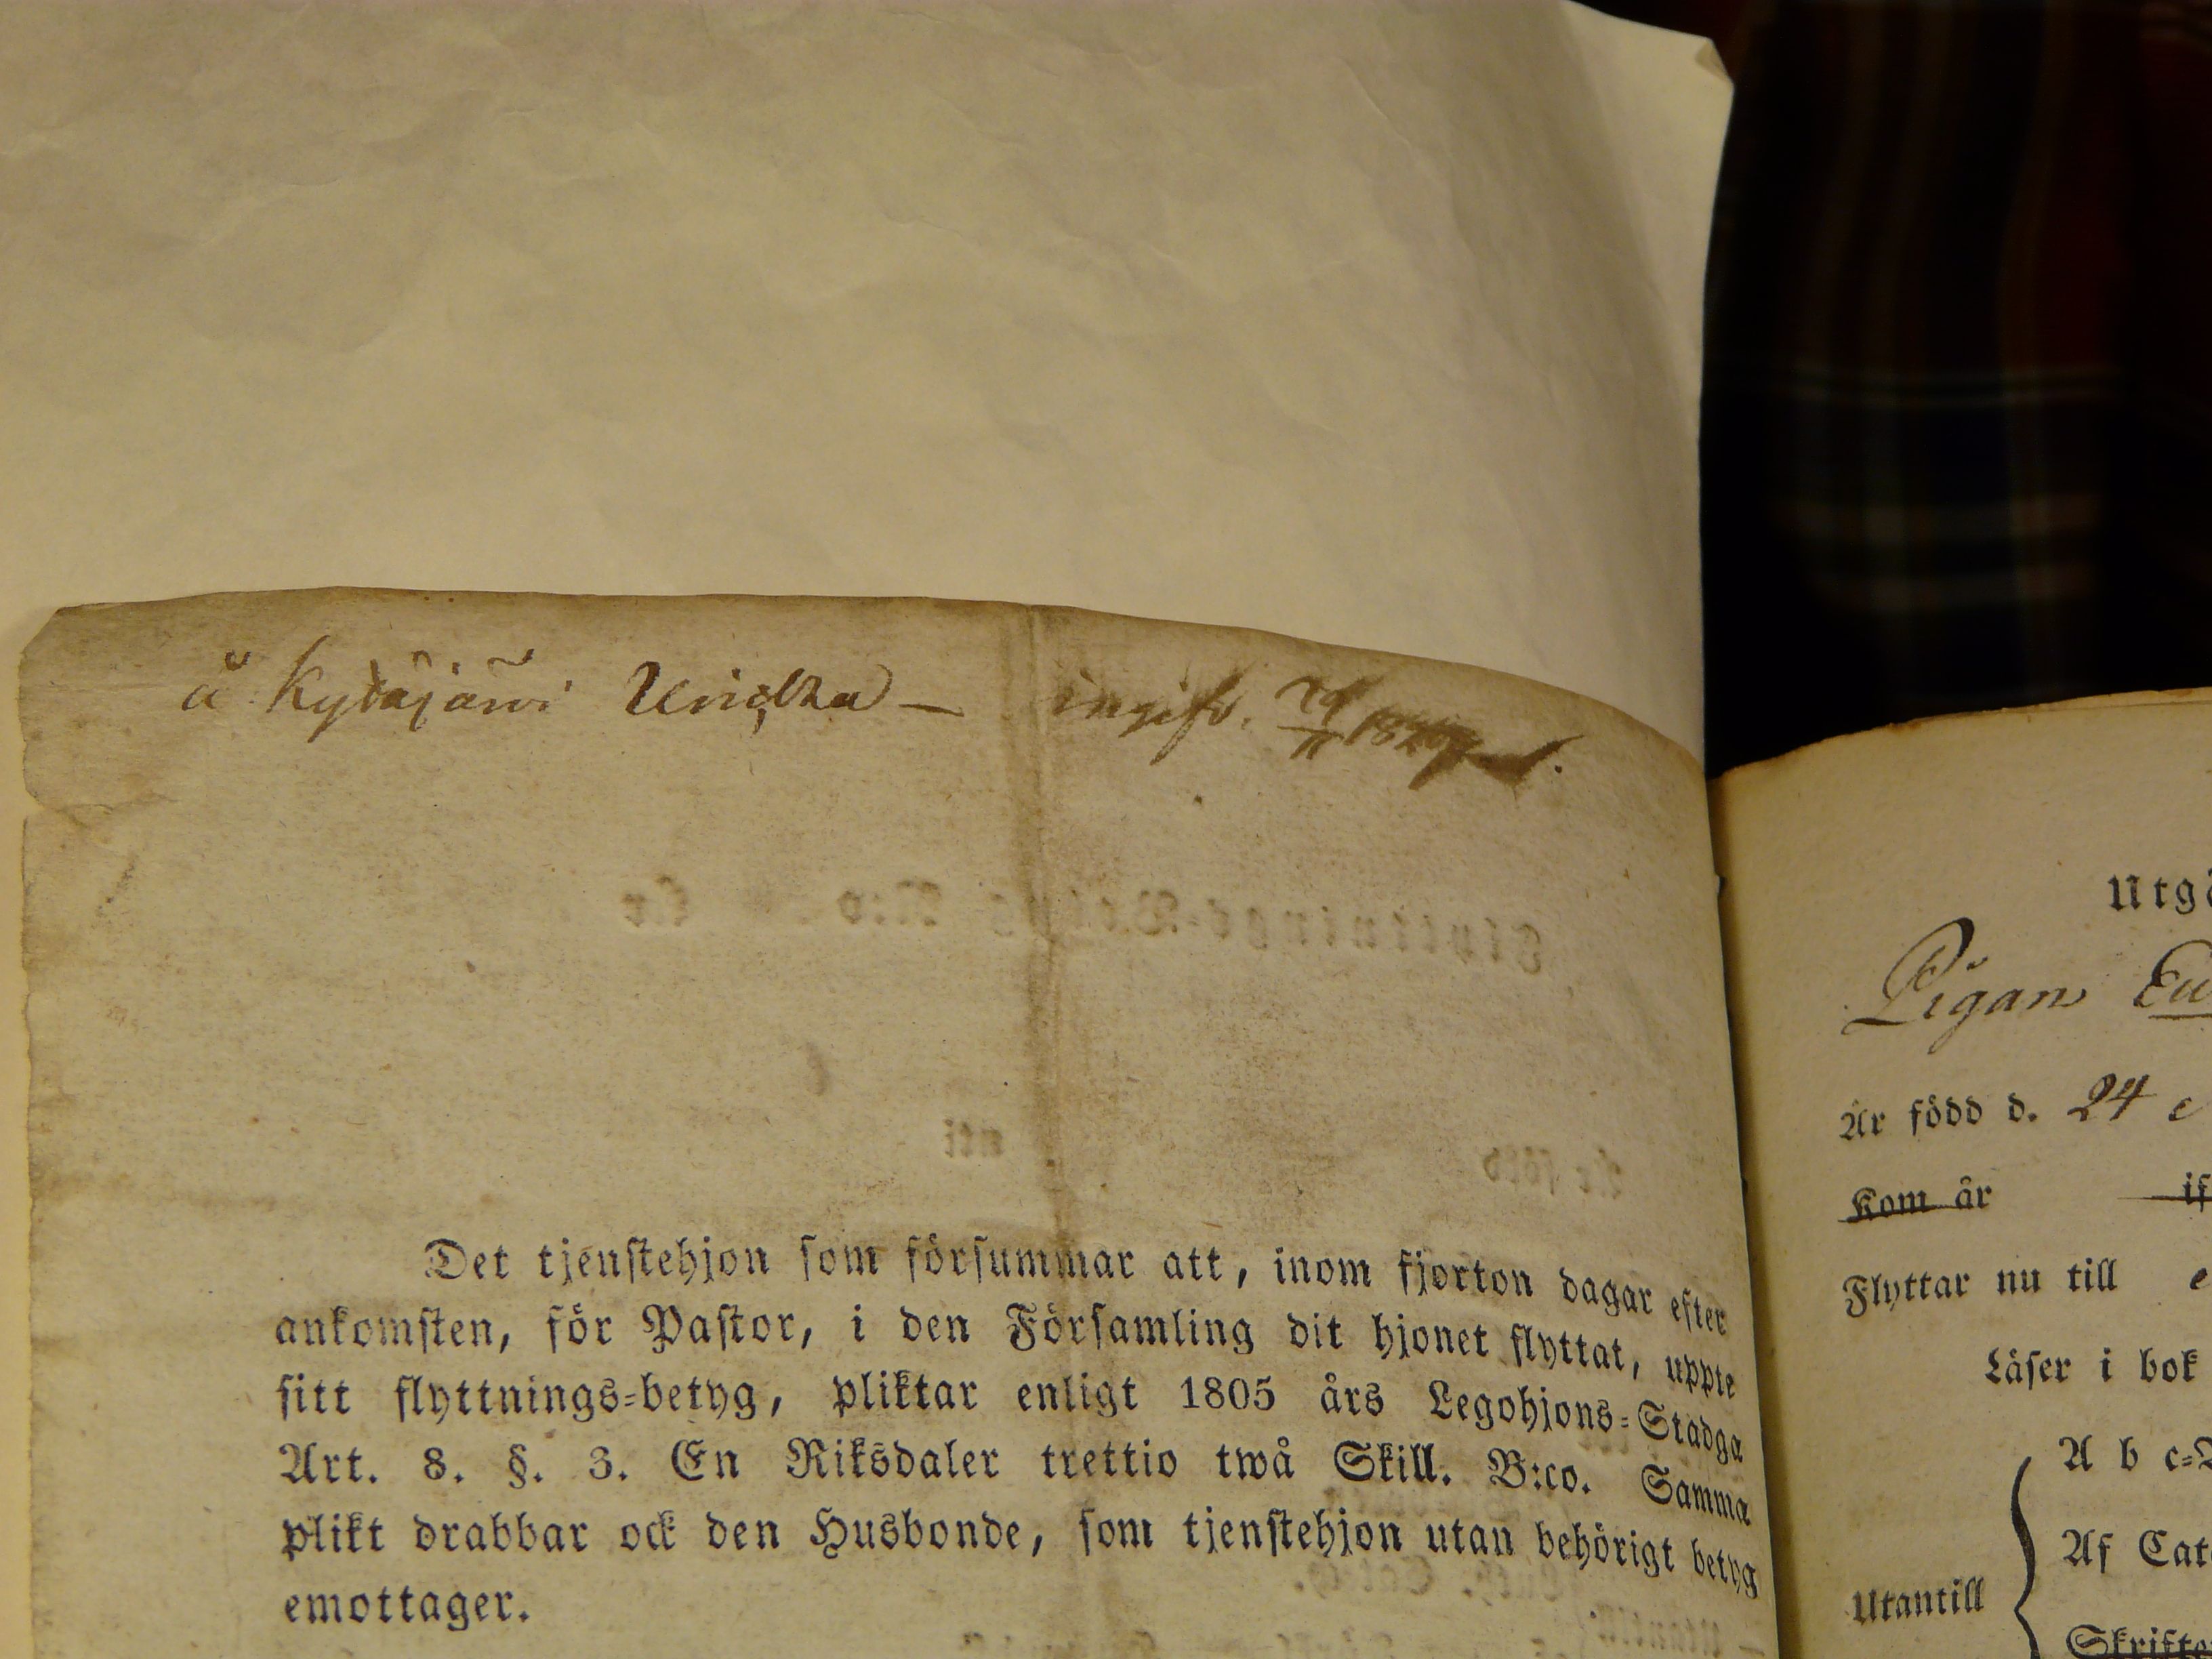 å Kytäjärvi Uriska — ingifv. 29/11 1846
Det tjenstehjon som försummar att, inom fjorton dagar efter
ankomsten, för Pastor, i den Församling dit hjonet flyttat, uppte
sitt flyttnings-betyg, pliktar enligt 1805 års Legohjons-Stadga
Art. 8. §. 3. En Riksdaler trettio twå Skill. B:co. Samma
plikt drabbar ock den Husbonde, som tjenstehjon utan behörigt betyg
emottager.
Utgå
Pigan
Är född d. 24
Kom år
Flyttar nu till
Läser i bok
A b c-
Af Cat
Utantill
Skrifte